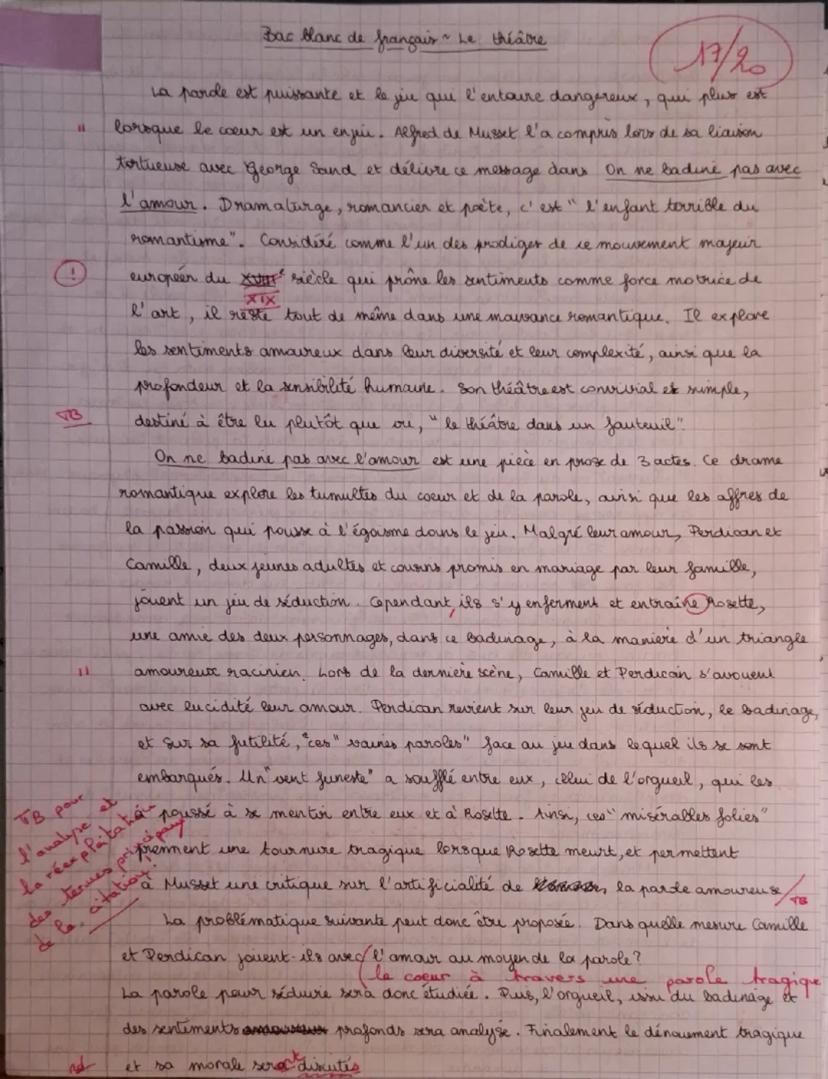 Bac blanc de français ~ Le théâtre
17/20
La parole est puissante et le jeu qui l'entoure dangereux, qui plus est
" lorsque le coeur est un enjeu. Alfred de Musset l'a compris lors de sa liaison
tortueuse avec George Sand et délivre ce message dans On ne badine pas avec
l'amour. Dramaturge, romancier et poète, c'est "l'enfant terrible du
romantisme". Considéré comme l'un des prodiges de ce mouvement majeur
! européen du XVIIIe siècle qui prône les sentiments comme force motrice de
XIX
l'art, il reste tout de même dans une mouvance romantique. Il explore
les sentiments amoureux dans leur diversité et leur complexité, ainsi que la
profondeur et la sensibilité humaine. Son théâtre est convivial et simple,
TB destiné à être lu plutôt que vu, "le théâtre dans un fauteuil".
On ne badine pas avec l'amour est une pièce en prose de 3 actes. Ce drame
romantique explore les tumultes du coeur et de la parole, ainsi que les affres de
la passion qui pousse à l'égoisme dans le jeu. Malgré leur amour, Perdican et
Camille, deux jeunes adultes et cousins promis en mariage par leur famille,
jouent un jeu de séduction. Cependant, ils s'y enferment et entraine Rosette,
une amie des deux personnages, dans ce badinage, à la manière d'un triangle
" amoureux racinien. Lors de la dernière scène, Camille et Perdican s'avouent
avec lucidité leur amour. Perdican revient sur leur jeu de séduction, le badinage,
et sur sa futilité, "ces" vaines paroles" face au jeu dans lequel ils se sont
embarqués. Un "vent funeste" a soufflé entre eux, celui de l'orgueil, qui les
a poussé à se mentir entre eux et à Rosette. Ainsi, ces "misérables folies"
prennent une tournure tragique lorsque Rosette meurt, et permettent
à Musset une critique sur l'artificialité de la parole amoureuse / TB
TB pour
l'analyse et
la réexploitation
des termes principaux
de la citation.
La problématique suivante peut donc être proposée. Dans quelle mesure Camille
et Perdican jouent-ils avec l'amour au moyen de la parole?
le coeur à travers une parole tragique
La parole pour séduire sera donc étudiée. Puis, l'orgueil, issu du badinage et
des sentiments profonds sera analysé. Finalement le dénouement tragique
et sa morale seront discutés